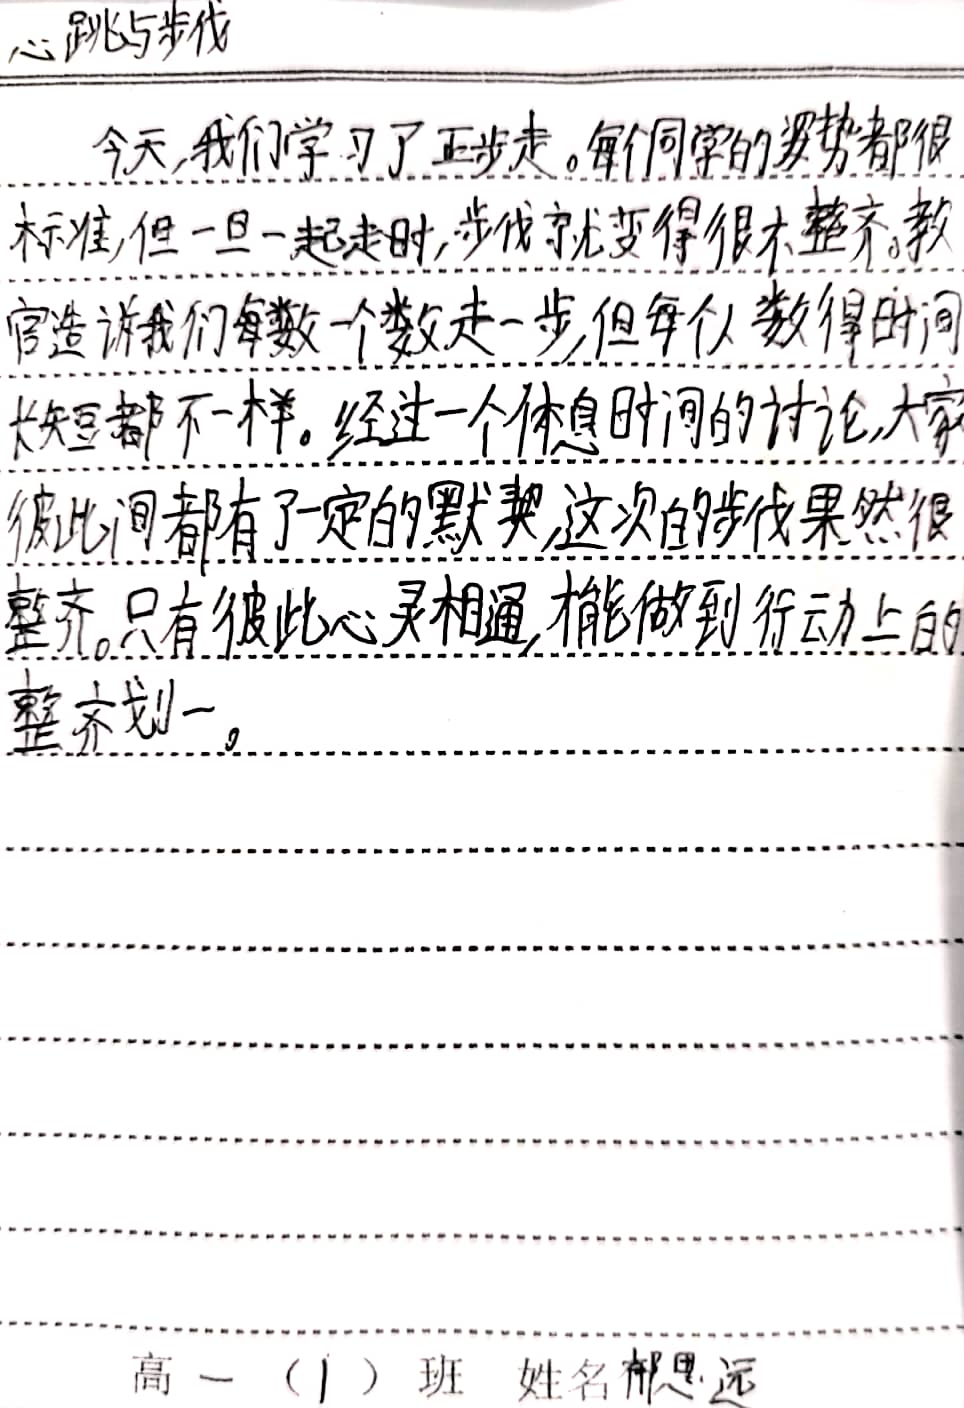 心跳与步伐
今天,我们学习了正步走。每个同学的姿势都很
标准,但一旦一起走时,步伐就变得很不整齐。教
官造诉我们每数一个数走一步,但每个人数得时间
长短都不一样。经过一个休息时间的讨论,大家
彼此间都有了一定的默契,这次的步伐果然很
整齐。只有彼此心灵相通,才能做到行动上的
整齐划一。
高一（1）班 姓名郁思远